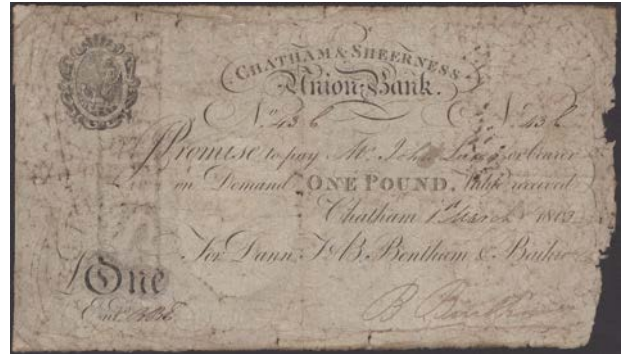 CHATHAM & SHEERNESS
Union Bank.
No. 436 No. 436
I Promise to pay Mr. John or bearer
on Demand ONE POUND. Value received
Chatham 1 March 1812
For Dann, J. & B. Bentham & Baiker
£ One
Entd.
B Bentham